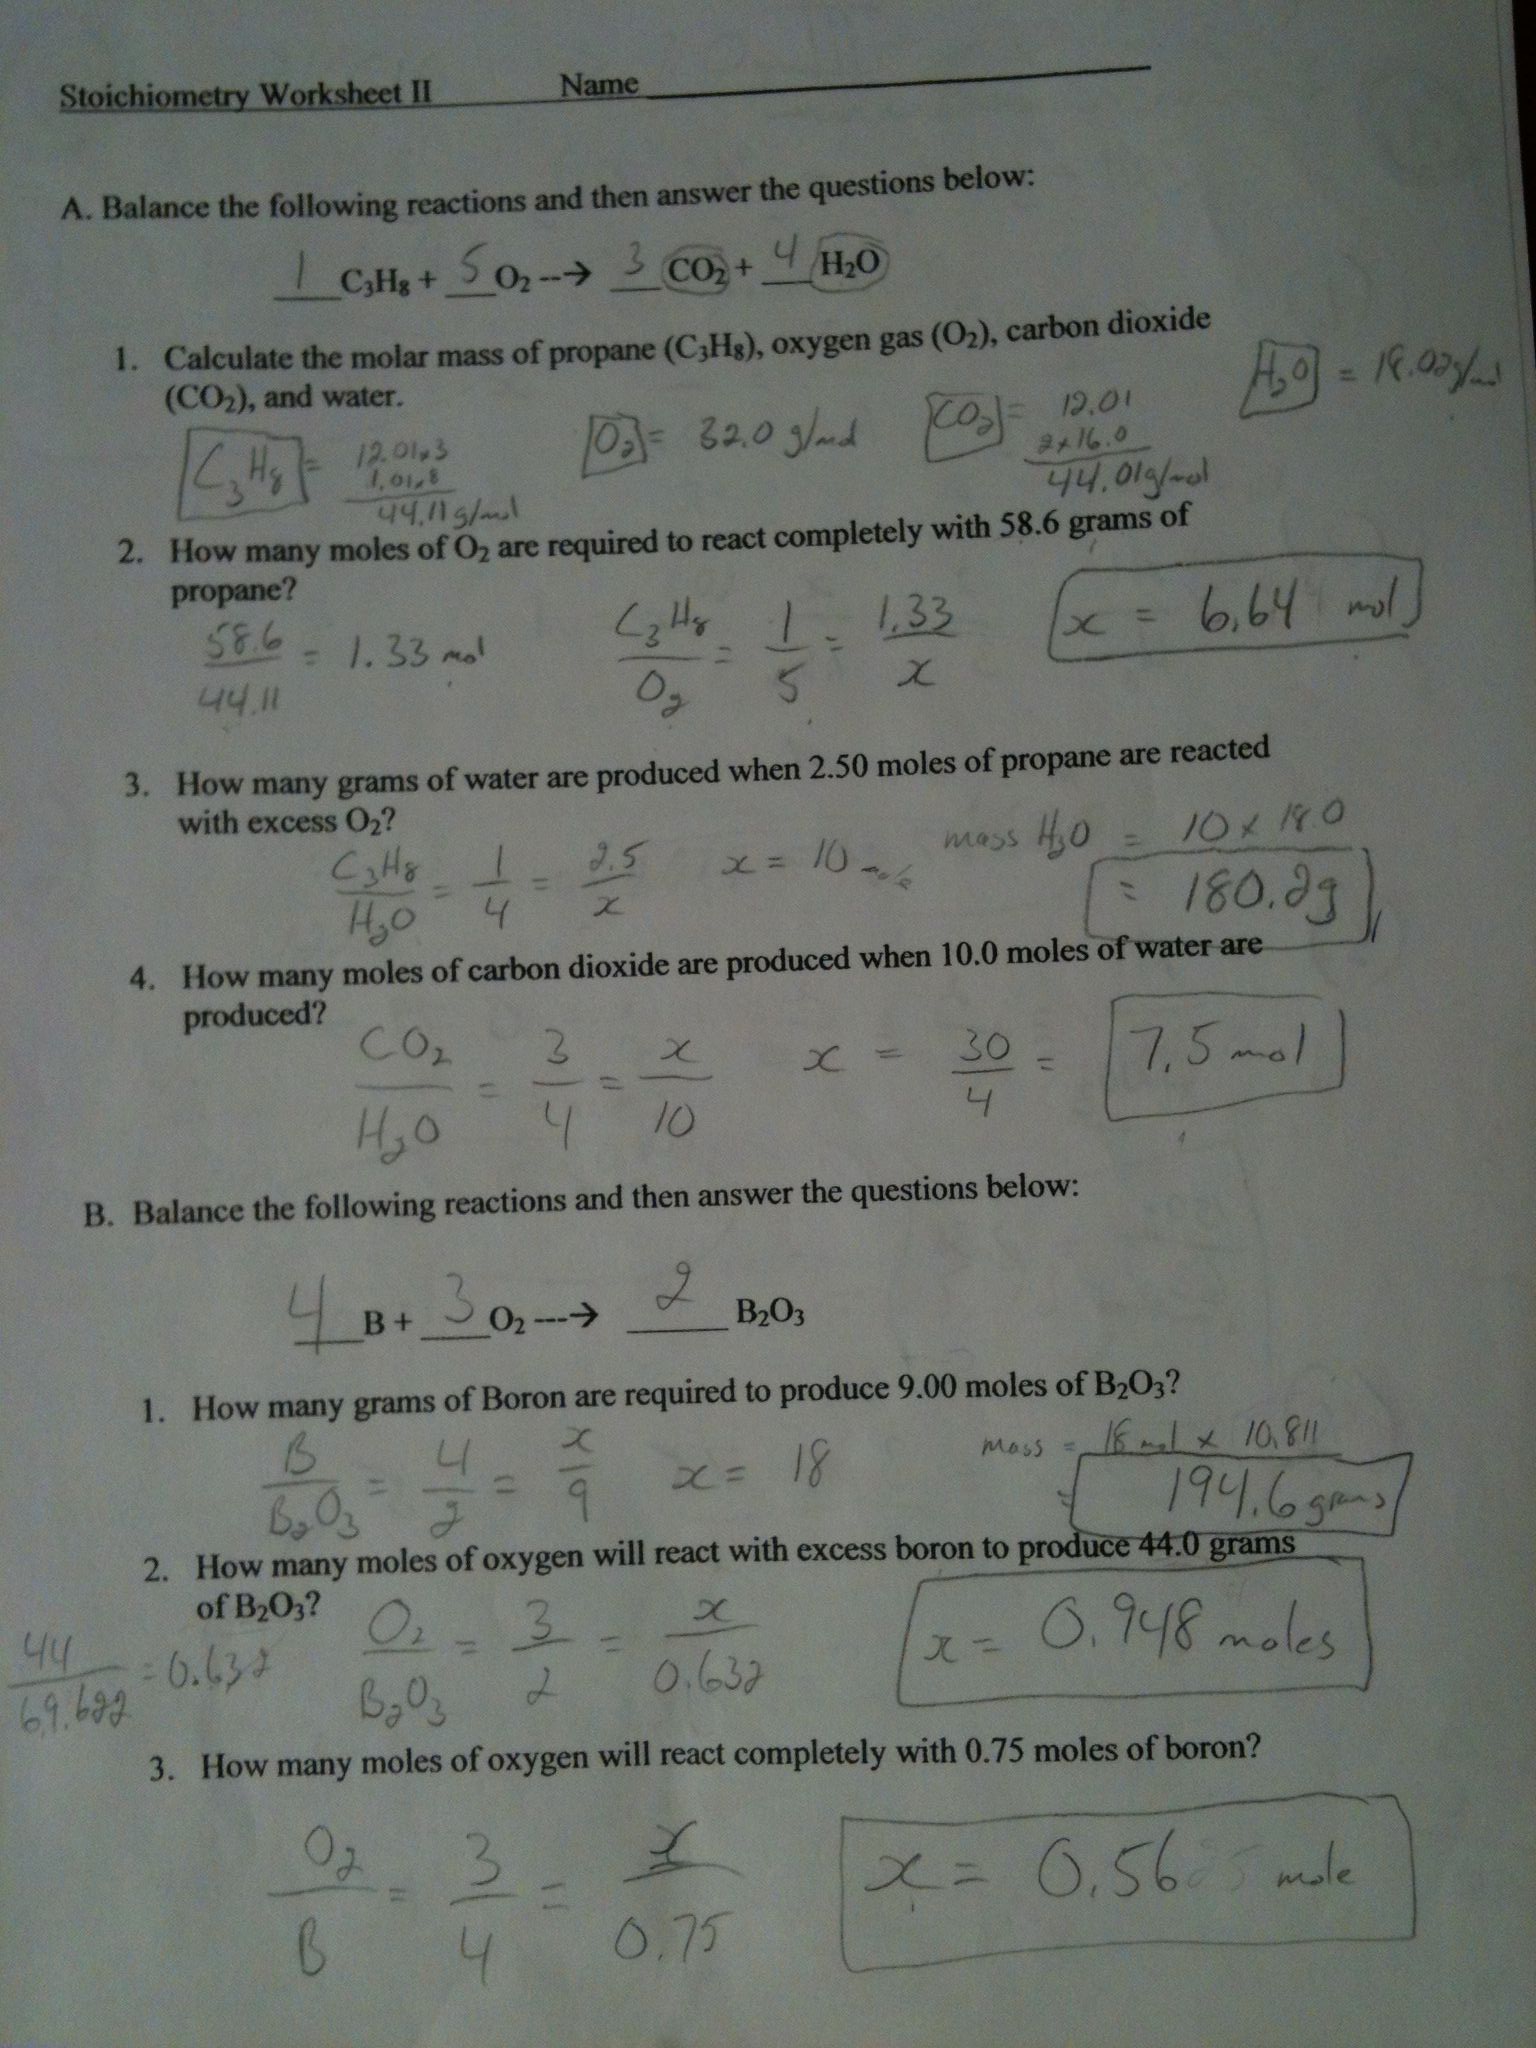 Stoichiometry Worksheet II Name
A. Balance the following reactions and then answer the questions below:
1 C₃H₈ + 5 O₂ --→ 3 CO₂ + 4 H₂O
1. Calculate the molar mass of propane (C₃H₈), oxygen gas (O₂), carbon dioxide
(CO₂), and water.
C₃H₈ = 12.01x3
1.01x8
44.11 g/mol
O₂ = 32.0 g/mol
CO₂ = 12.01
2x16.0
44.01 g/mol
H₂O = 18.02 g/mol
2. How many moles of O₂ are required to react completely with 58.6 grams of
propane?
58.6/44.11 = 1.33 mol
C₃H₈/O₂ = 1/5 = 1.33/x
x = 6.64 mol
3. How many grams of water are produced when 2.50 moles of propane are reacted
with excess O₂?
C₃H₈/H₂O = 1/4 = 2.5/x x = 10 mole
mass H₂O = 10 x 18.0
= 180.2g
4. How many moles of carbon dioxide are produced when 10.0 moles of water are
produced?
CO₂/H₂O = 3/4 = x/10 x = 30/4 = 7.5 mol
B. Balance the following reactions and then answer the questions below:
4 B + 3 O₂ ---→ 2 B₂O₃
1. How many grams of Boron are required to produce 9.00 moles of B₂O₃?
B/B₂O₃ = 4/2 = x/9 x = 18
mass = 18 mol x 10.811
= 194.6 grams
2. How many moles of oxygen will react with excess boron to produce 44.0 grams
of B₂O₃?
44/69.622 = 0.632
O₂/B₂O₃ = 3/2 = x/0.632
x = 0.948 moles
3. How many moles of oxygen will react completely with 0.75 moles of boron?
O₂/B = 3/4 = x/0.75
x = 0.56 mole